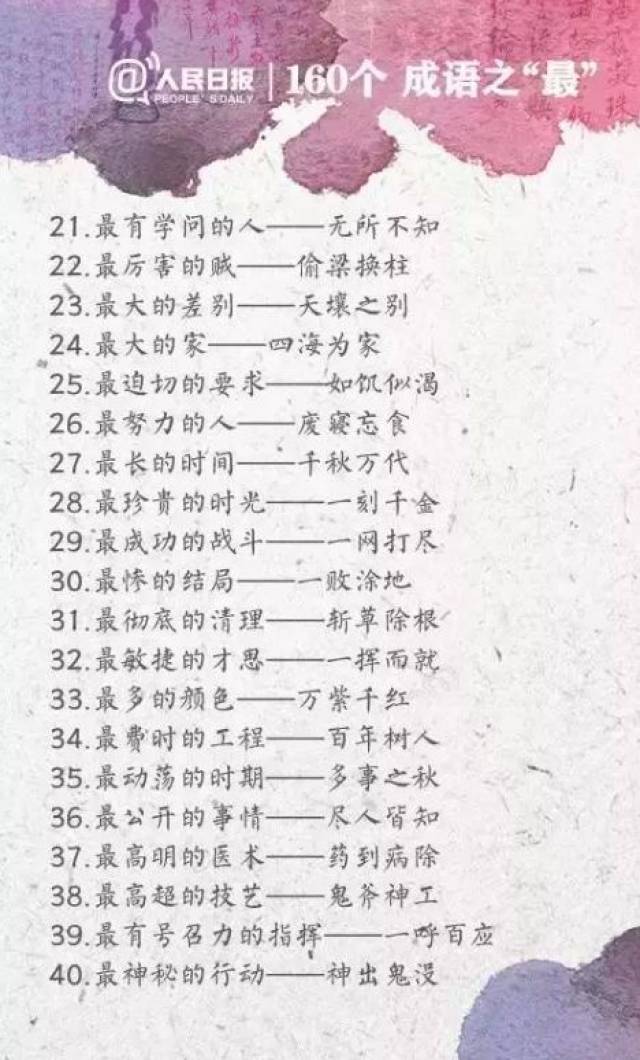 @人民日报 PEOPLE'S DAILY | 160个 成语之“最”
21.最有学问的人——无所不知
22.最厉害的贼——偷梁换柱
23.最大的差别——天壤之别
24.最大的家——四海为家
25.最迫切的要求——如饥似渴
26.最努力的人——废寝忘食
27.最长的时间——千秋万代
28.最珍贵的时光——一刻千金
29.最成功的战斗——一网打尽
30.最惨的结局——一败涂地
31.最彻底的清理——斩草除根
32.最敏捷的才思——一挥而就
33.最多的颜色——万紫千红
34.最费时的工程——百年树人
35.最动荡的时期——多事之秋
36.最公开的事情——尽人皆知
37.最高明的医术——药到病除
38.最高超的技艺——鬼斧神工
39.最有号召力的指挥——一呼百应
40.最神秘的行动——神出鬼没